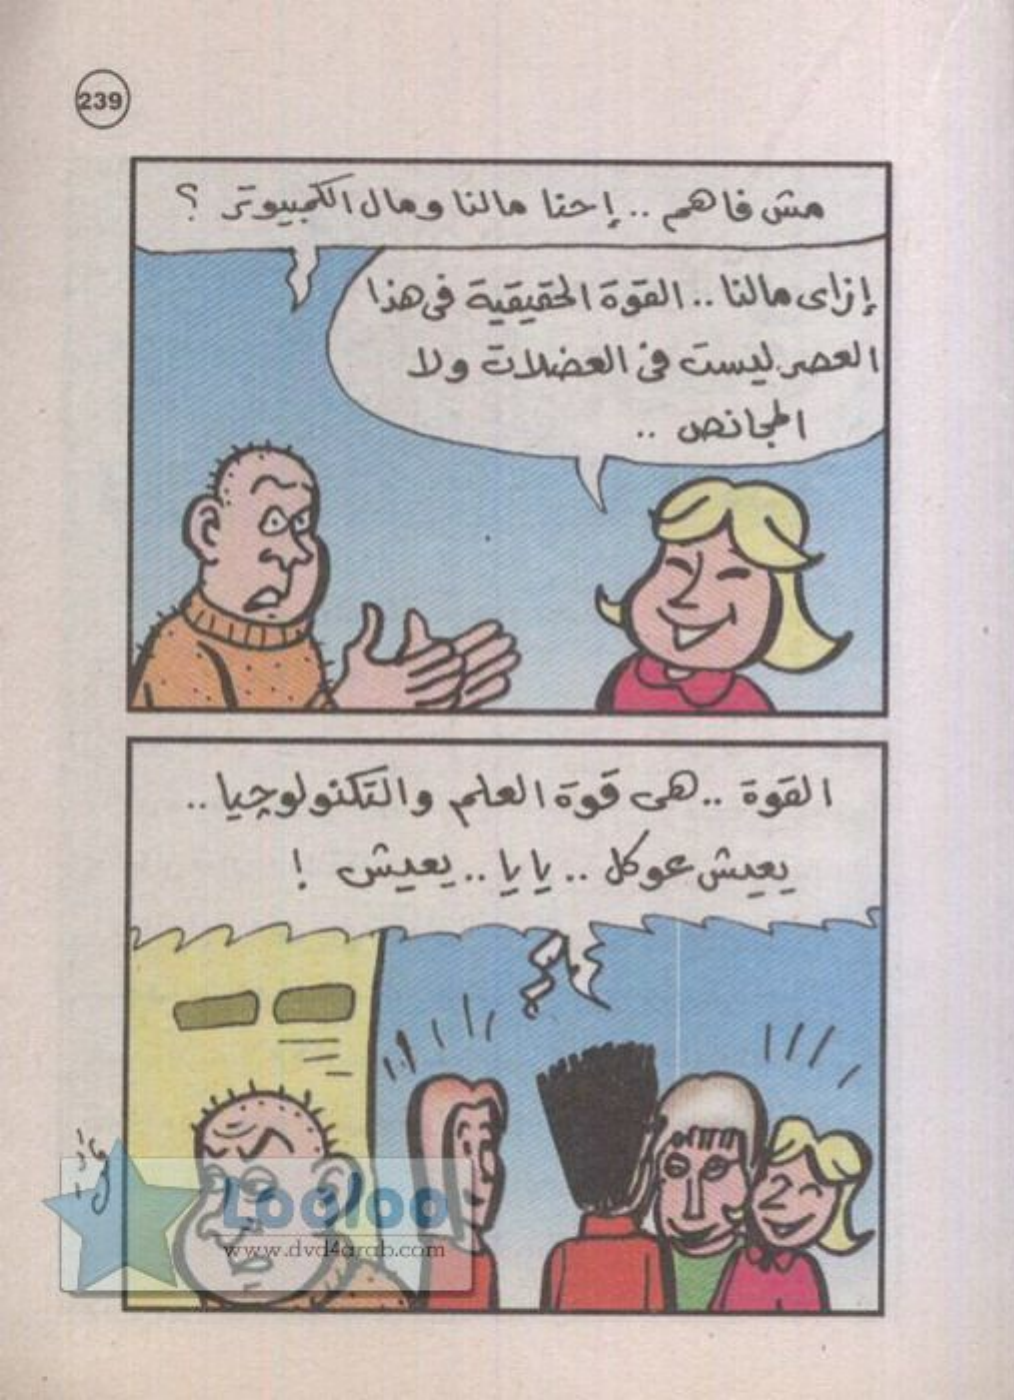 239
مش فاهم .. إحنا مالنا ومال الكمبيوتر ؟
إزاى مالنا .. القوة الحقيقية فى هذا
العصر ليست فى العضلات ولا
المجانص ..
القوة .. هى قوة العلم والتكنولوچيا ..
يعيش عوكل .. يا يا .. يعيش !
Looloo
www.dvd4arab.com